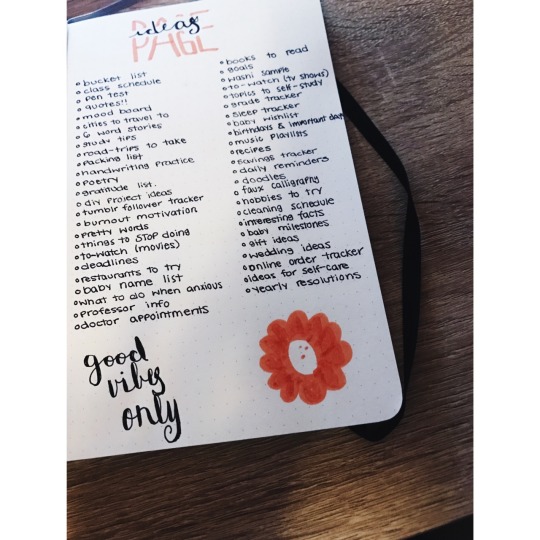 ideas
PAGE
° bucket list
° class schedule
° pen test
° quotes!!
° mood board
° cities to travel to
° 6 word stories
° study tips
° road-trips to take
° packing list
° handwriting practice
° poetry
° gratitude list
° diy project ideas
° tumblr follower tracker
° burnout motivation
° pretty words
° things to STOP doing
° to-watch (movies)
° deadlines
° restaurants to try
° baby name list
° what to do when anxious
° professor info
° doctor appointments
° books to read
° goals
° washi sample
° to-watch (tv shows)
° topics to self-study
° grade tracker
° sleep tracker
° baby wishlist
° birthdays & important days
° music playlists
° recipes
° savings tracker
° daily reminders
° doodles
° faux calligraphy
° hobbies to try
° cleaning schedule
° interesting facts
° baby milestones
° gift ideas
° wedding ideas
° online order tracker
° ideas for self-care
° yearly resolutions
good
vibes
only